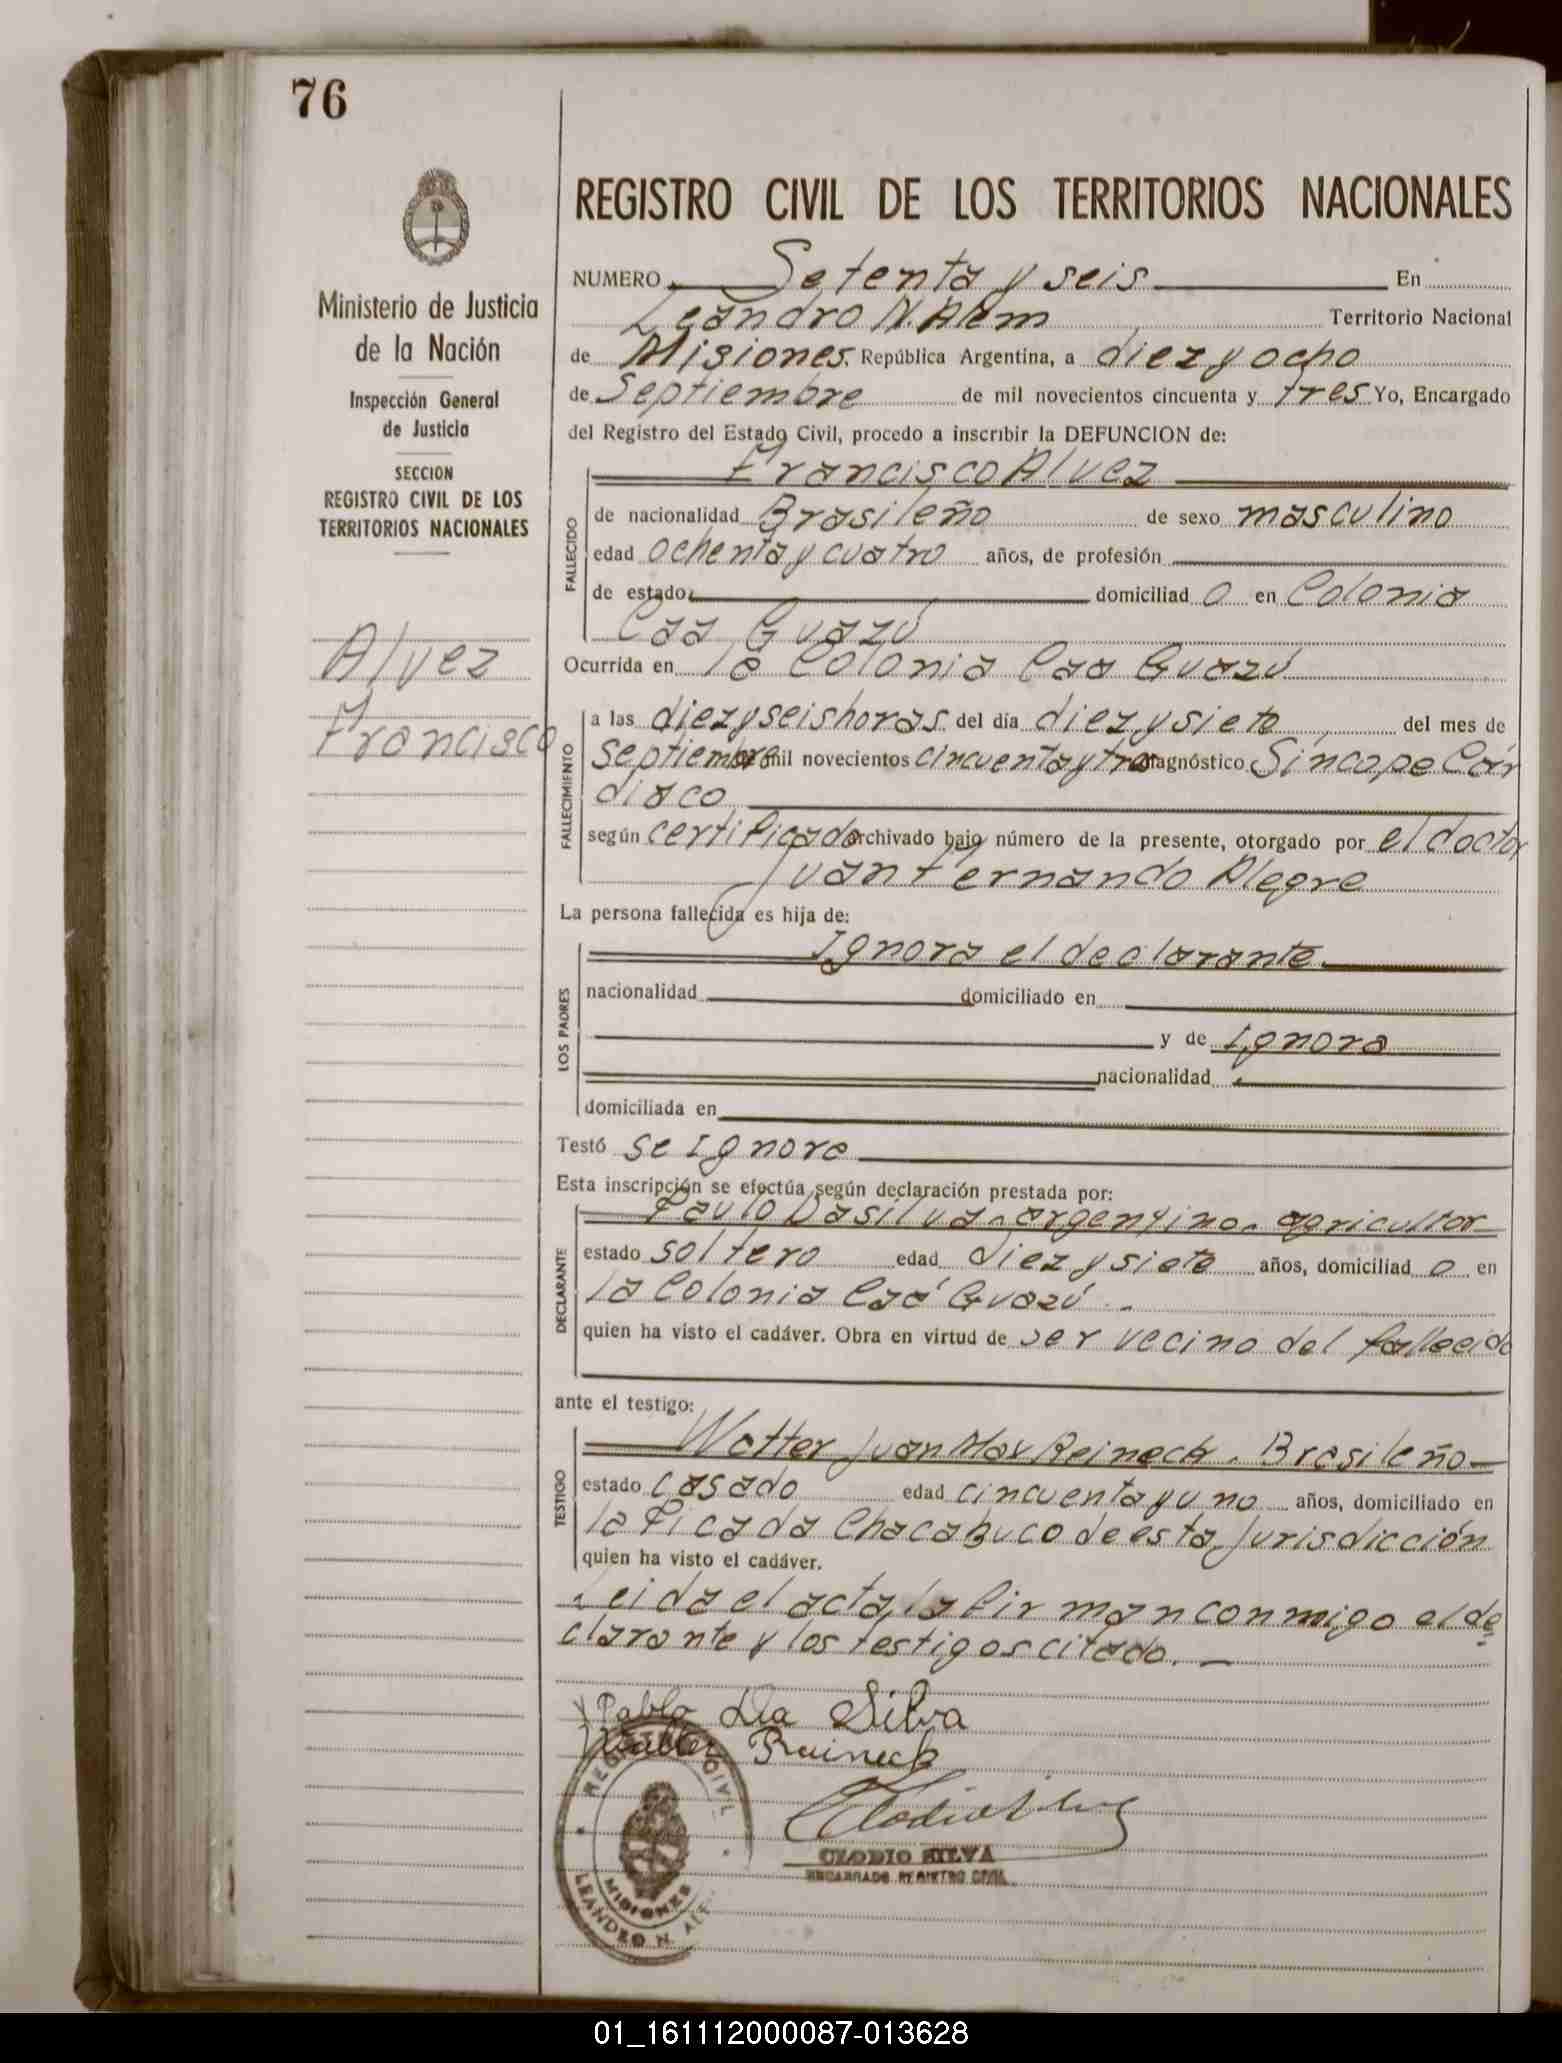 76
Ministerio de Justicia
de la Nación
Inspección General
de Justicia
SECCION
REGISTRO CIVIL DE LOS
TERRITORIOS NACIONALES
Alvez
Francisco
REGISTRO CIVIL DE LOS TERRITORIOS NACIONALES
NUMERO Setenta y seis En
Leandro N. Alem Territorio Nacional
de Misiones, República Argentina, a diez y ocho
de Septiembre de mil novecientos cincuenta y tres Yo, Encargado
del Registro del Estado Civil, procedo a inscribir la DEFUNCION de:
FALLECIDO
Francisco Alvez
de nacionalidad Brasileño de sexo masculino
edad ochenta y cuatro años, de profesión
de estado: domiciliad o en Colonia
Caa Guazú
Ocurrida en la Colonia Caa Guazú
FALLECIMIENTO
a las diez y seis horas del día diez y siete del mes de
Septiembre mil novecientos cincuenta y tres diagnóstico Síncope Cár
diaco
según certificado archivado bajo número de la presente, otorgado por el doctor
Juan Fernando Alegre
La persona fallecida es hija de:
LOS PADRES
Ignora el declarante
nacionalidad domiciliado en
y de Ignora
nacionalidad
domiciliada en
Testó se Ignora
Esta inscripción se efectúa según declaración prestada por:
DECLARANTE
Paulo Dasilva - argentino - agricultor
estado soltero edad diez y siete años, domiciliad o en
la Colonia Caá Guazú.-
quien ha visto el cadáver. Obra en virtud de ser vecino del fallecido
ante el testigo:
TESTIGO
Walter Juan Max Reineck - Brasileño-
estado casado edad cincuenta y uno años, domiciliado en
la Picada Chacabuco de esta jurisdicción
quien ha visto el cadáver.
Leida el acta, la firman conmigo el de
clarante y los testigos citado. -
Pablo Da Silva
Walter Reineck
CLODIO SILVA
ENCARGADO REGISTRO CIVIL
REGISTRO CIVIL
MISIONES
LEANDRO N. ALEM
01_161112000087-013628